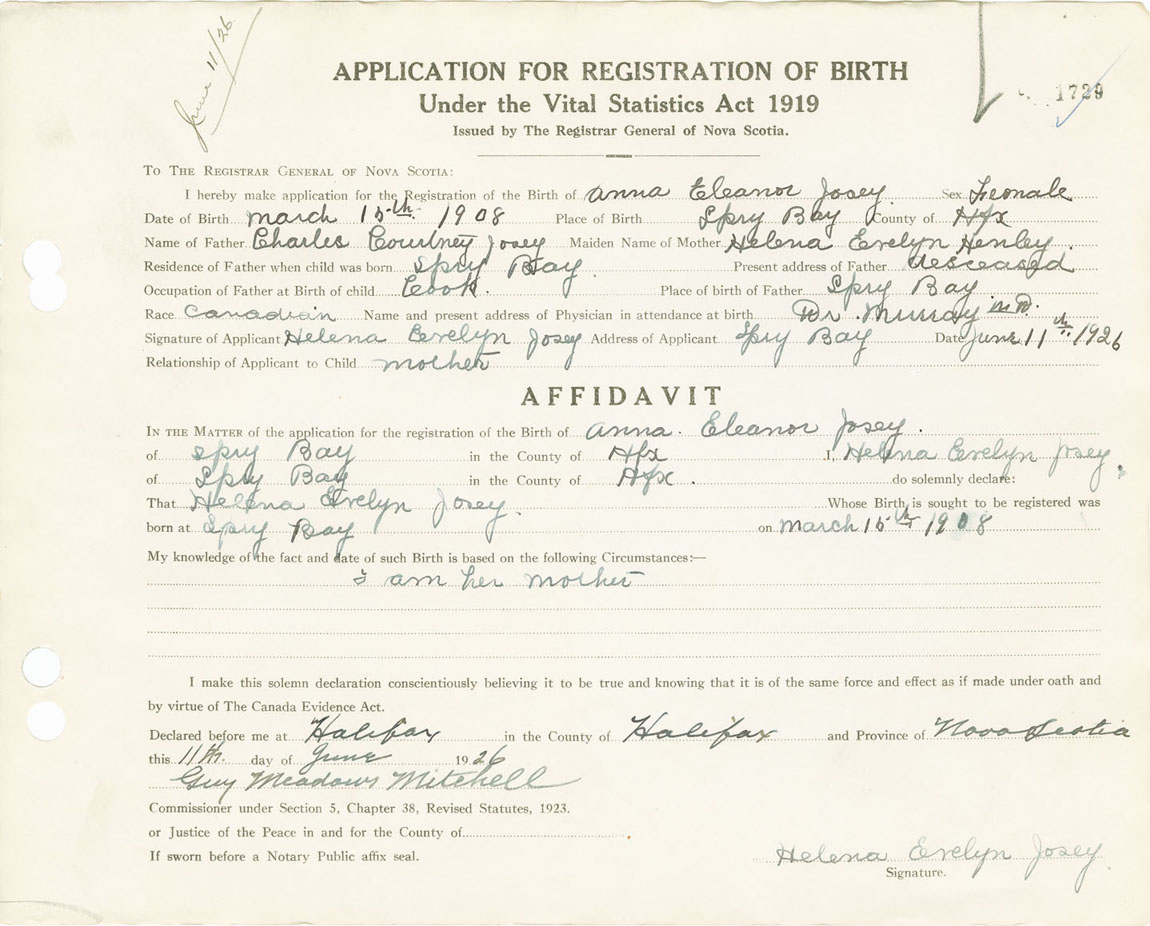 June 11/26
APPLICATION FOR REGISTRATION OF BIRTH
1729
Under the Vital Statistics Act 1919
Issued by The Registrar General of Nova Scotia.
To The Registrar General of Nova Scotia:
I hereby make application for the Registration of the Birth of Anna Eleanor Josey Sex Female
Date of Birth March 15th 1908 Place of Birth Spry Bay County of Hfx
Name of Father Charles Courtney Josey Maiden Name of Mother Helena Evelyn Henley.
Residence of Father when child was born Spry Bay. Present address of Father desceased
Occupation of Father at Birth of child Cook. Place of birth of Father Spry Bay
Race Canadian Name and present address of Physician in attendance at birth Dr. Murray M.D.
Signature of Applicant Helena Evelyn Josey Address of Applicant Spry Bay Date June 11th 1926
Relationship of Applicant to Child mother
AFFIDAVIT
In the Matter of the application for the registration of the Birth of Anna. Eleanor Josey.
of Spry Bay in the County of Hfx I, Helena Evelyn Josey,
of Spry Bay in the County of Hfx. do solemnly declare:
That Helena Evelyn Josey. Whose Birth is sought to be registered was
born at Spry Bay on March 15th 1908
My knowledge of the fact and date of such Birth is based on the following Circumstances:—
I am her mother
I make this solemn declaration conscientiously believing it to be true and knowing that it is of the same force and effect as if made under oath and
by virtue of The Canada Evidence Act.
Declared before me at Halifax in the County of Halifax and Province of Nova Scotia
this 11th. day of June 1926
Guy Meadows Mitchell
Commissioner under Section 5, Chapter 38, Revised Statutes, 1923.
or Justice of the Peace in and for the County of
If sworn before a Notary Public affix seal.
Helena Evelyn Josey
Signature.